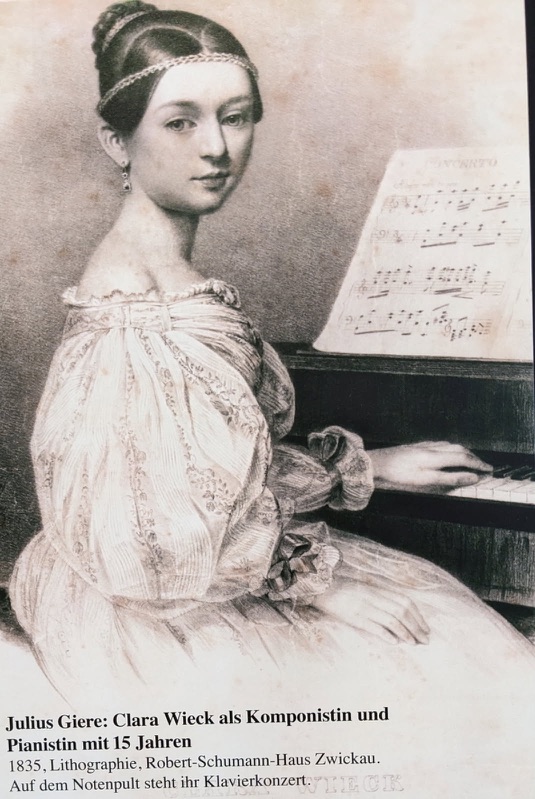 CONCERTO
Julius Giere: Clara Wieck als Komponistin und
Pianistin mit 15 Jahren
1835, Lithographie, Robert-Schumann-Haus Zwickau.
Auf dem Notenpult steht ihr Klavierkonzert.
WIECK